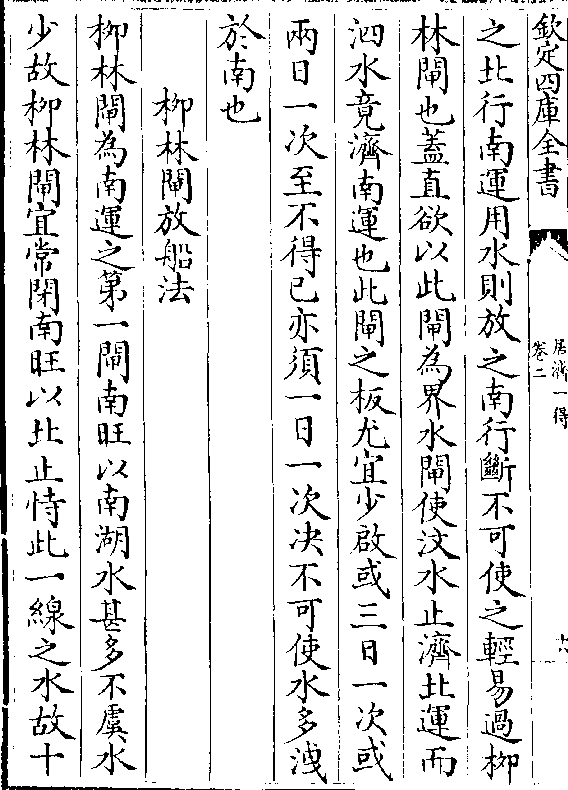 欽定四庫全書
居濟一得
卷二
之北行南運用水則放之南行斷不可使之輕易過柳
林閘也蓋直欲以此閘為界水閘使汶水止濟北運而
泗水竟濟南運也此閘之板尤宜少啟或三日一次或
兩日一次至不得已亦須一日一次决不可使水多洩
於南也
柳林閘放船法
柳林閘為南運之第一閘南旺以南湖水甚多不虞水
少故柳林閘宜常閉南旺以北止恃此一線之水故十